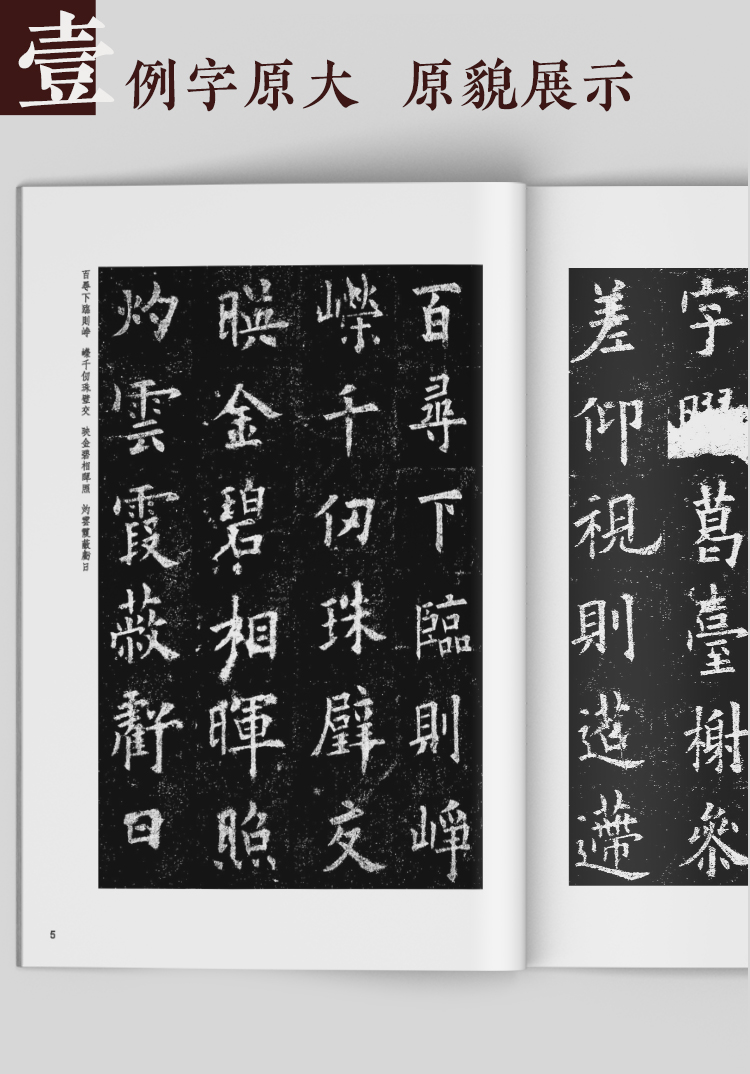 壹
例字原大 原貌展示
宇葛臺榭參
差仰視則迢遰
百尋下臨則崢
嶸千仞珠璧交
暎金碧相暉照
灼雲霞蔽虧日
百尋下臨則崢 嶸千仞珠璧交 映金碧相暉照 灼雲霞蔽虧日
5